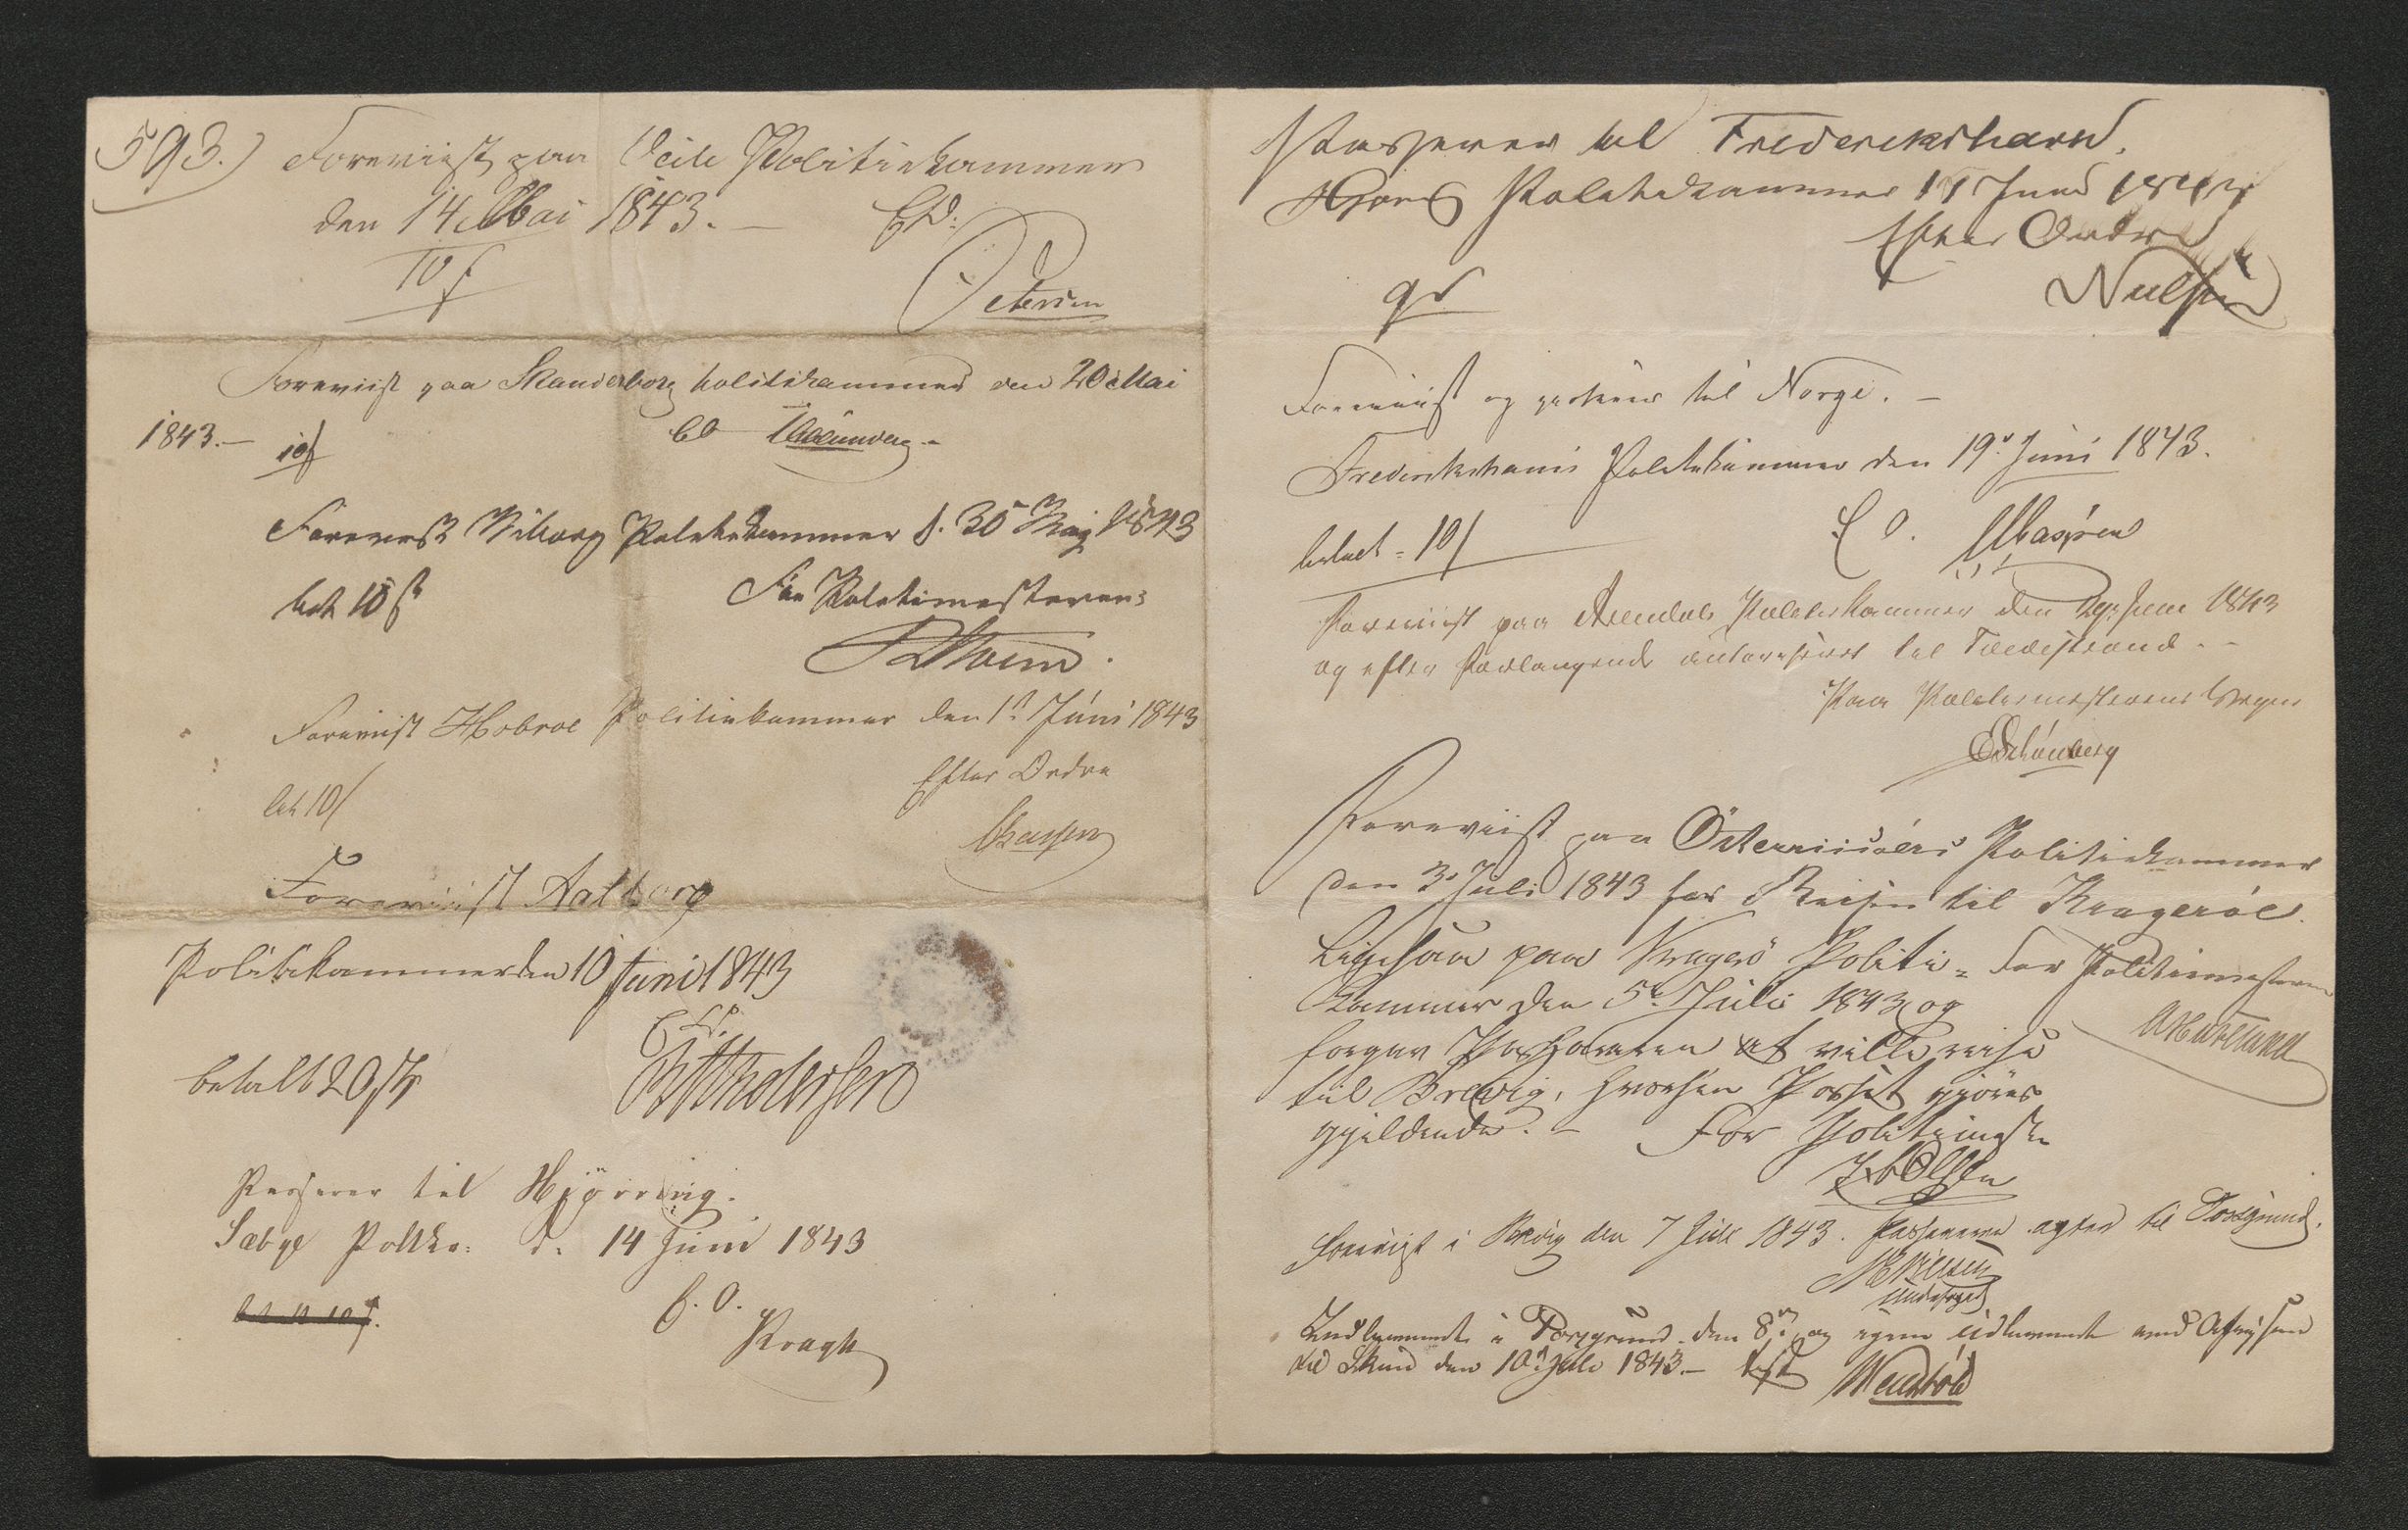 593.) Foreviist paa Veile Politiekammer
den 14 Mai 1843. — E. O.
10 s
Petersen
Foreviist paa Skanderborg Politikammer den 20 Mai
1843. — 10 s
EO
Foreviist Viborg Politiekammer d. 30 Maj 1843
bet 10 s
For Politimesteren
Foreviist Hobroe Politiekammer den 1st Juni 1843
bet 10 s
Efter Ordre
Foreviist Aalborg
Politikammer den 10 Juni 1843
EO
betalt 20 s
Andersen
Passerer til Hjörring.
Sæbye Politk: d. 14 Juni 1843
E. O.
Kragh
Passerer til Frederikshavn.
Hjörring Politiekammer 17 Juni 1843
Efter Ordre
Nielsen
Foreviist og passerer til Norge. —
Frederikshavns Politiekammer den 19de Juni 1843.
betalt = 10 s
E O.
Foreviist paa Arendals Politiekammer den 29 Juni 1843
og efter Forlangende authoriseret til Tvedestrand. —
Paa Politiemesterens Vegne
Foreviist paa Österriisöers Politiekammer
den 3die Juli 1843 for Reisen til Krageröe.
For Politiemesteren
Ligesaa paa Kragerö Politi-
kammer den 5te Juli 1843, og
foregav Passhaveren at ville reise
til Brevig, hvorhen Passet gjöres
gjeldende. — For Politimester
Olsen
Foreviist i Brevig den 7 Juli 1843. Passeren agter til Porsgrund.
Nielsen
Indkommet i Porsgrund den 8de og igjen udkommet med Afreisen
til Skien den 10de Juli 1843. —